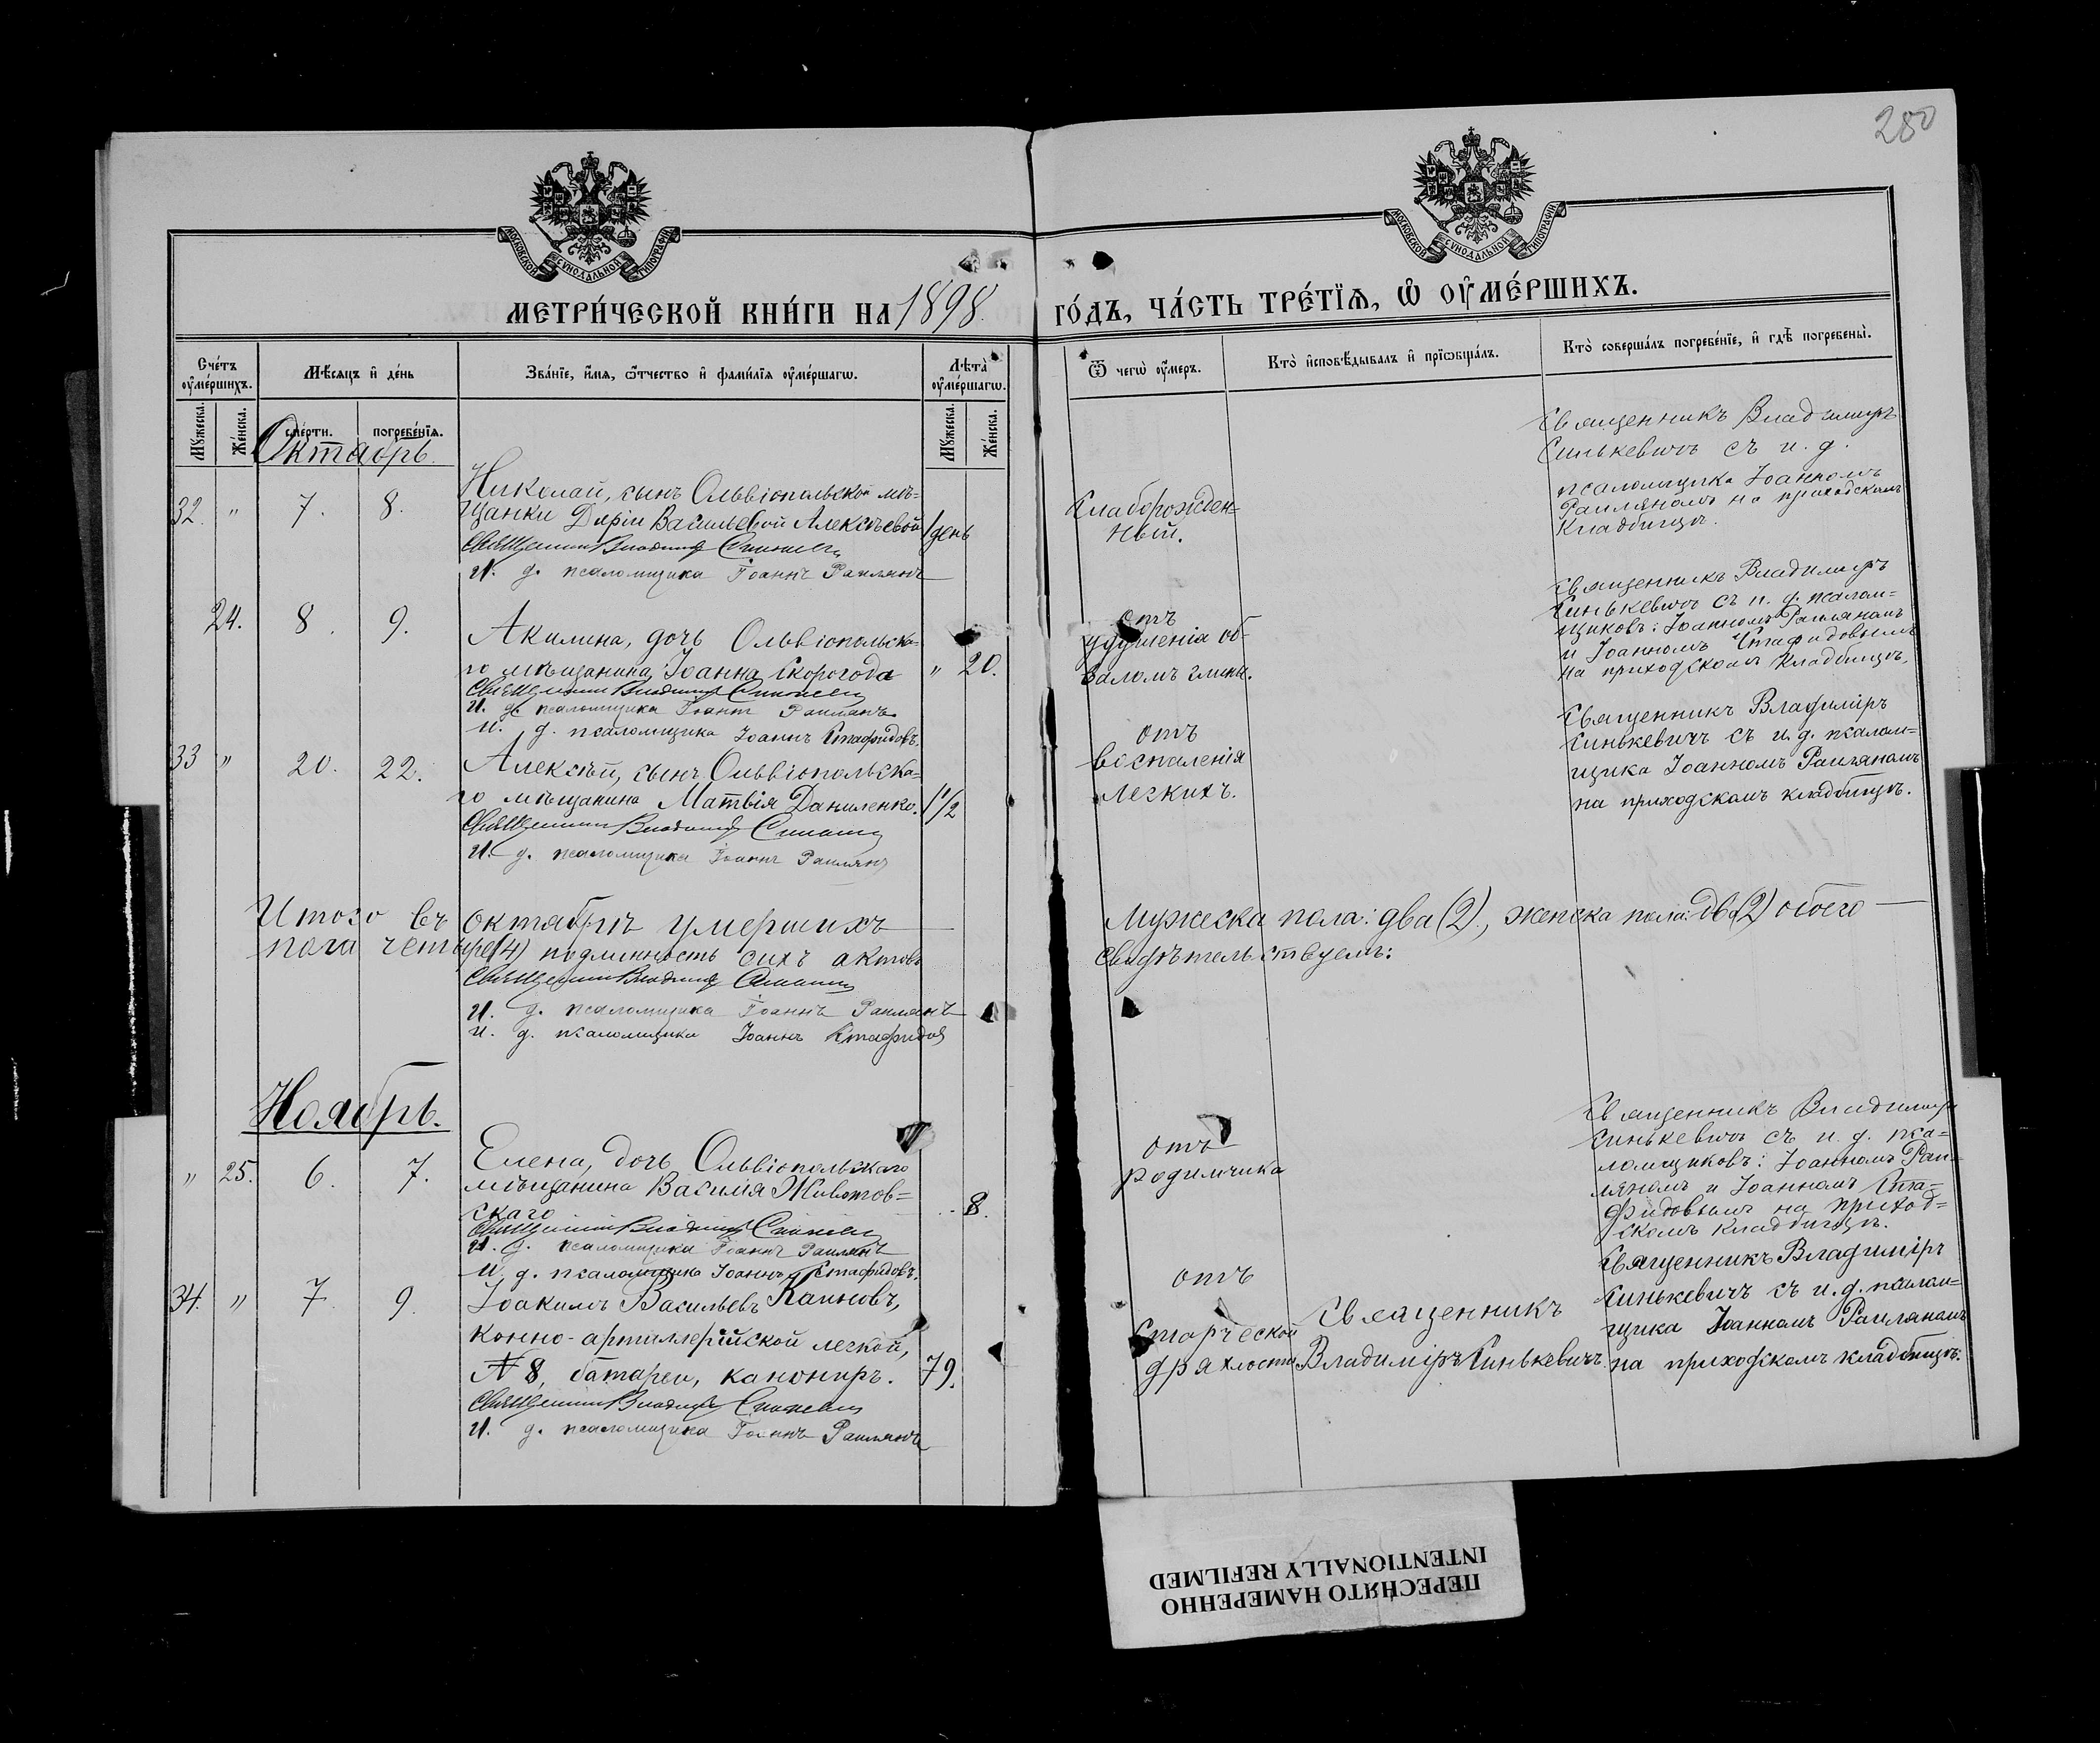 280
МОСКОВСКОЙ СУНОДАЛЬНОЙ ТИПОГРАФІИ
МОСКОВСКОЙ СУНОДАЛЬНОЙ ТИПОГРАФІИ
МЕТРИ́ЧЕСКОЙ КНИ́ГИ НА 1898.
ГО́ДЪ, ЧА́СТЬ ТРЕ́ТЇѦ, Ѡ ОУМЕ́РШИХЪ.
Сче́тъ оуме́ршихъ.
Мѣсяцъ и де́нь
Зва́нїе, и́мя, ѻ́тчество и фами́лїя оуме́ршагѡ.
Лѣта̀ оуме́ршагѡ.
Ѿ чегѡ̀ оу́меръ.
Кто̀ и҆сповѣ́дывалъ и҆ прїѡбща́лъ.
Кто̀ соверша́лъ погребе́нїе, и҆ гдѣ̀ погребены̀.
Мꙋжеска.
Же́нска.
сме́рти.
погребе́нїя.
Мꙋжеска.
Же́нска.
Октябрь.
32. " 7. 8.
Николай, сынъ Ольвіопольской мѣ=
щанки Даріи Васильевой Алексѣевой
1 день
Священникъ Владиміръ Синькевичъ
И. д. псаломщика Іоаннъ Раилянъ
Слаборожден=
ный.
Священникъ Владиміръ
Синькевичъ съ и. д.
псаломщика Іоанномъ
Раиляномъ на приходскомъ
кладбищѣ.
24. 8. 9.
Акилина, дочь Ольвіопольска=
го мѣщанина Іоанна Скорогода
" 20.
Священникъ Владиміръ Синькевичъ
И. д. псаломщика Іоаннъ Раилянъ
И. д. псаломщика Іоаннъ Стафидовъ.
отъ
удушенія об=
валомъ глины.
Священникъ Владиміръ
Синькевичъ съ и. д. псалом=
щиковъ: Іоанномъ Раиляномъ
и Іоанномъ Стафидовымъ
на приходскомъ кладбищѣ.
33 " 20. 22.
Алексѣй, сынъ Ольвіопольска=
го мѣщанина Матвія Даниленко.
1 1/2
Священникъ Владиміръ Синькевичъ
И. д. псаломщика Іоаннъ Раилянъ
отъ
воспаленія
легкихъ.
Священникъ Владиміръ
Синькевичъ съ и. д. псалом=
щика Іоанномъ Раиляномъ
на приходскомъ кладбищѣ.
Итого въ октябрѣ умершихъ
Мужеска пола: два (2), женска пола: два (2) обоего
пола четыре (4) подлинность сихъ актовъ
свидѣтельствуемъ:
Священникъ Владиміръ Синькевичъ
И. д. псаломщика Іоаннъ Раилянъ
и. д. псаломщика Іоаннъ Стафидовъ
Ноябрь.
" 25. 6. 7.
Елена, дочь Ольвіопольскаго
мѣщанина Василія Животов=
скаго
8.
Священникъ Владиміръ Синькевичъ
И. д. псаломщика Іоаннъ Раилянъ
И. д. псаломщика Іоаннъ Стафидовъ.
отъ
родимчика
Священникъ Владиміръ
Синькевичъ съ и. д. пса=
ломщиковъ: Іоанномъ Раи=
ляномъ и Іоанномъ Ста=
фидовымъ на приход=
скомъ кладбищѣ.
34. " 7. 9.
Іоакимъ Васильевъ Каиновъ,
конно-артиллерійской легкой,
№ 8, батареи, канониръ.
79.
Священникъ Владиміръ Синькевичъ
И. д. псаломщика Іоаннъ Раилянъ
отъ
старческой
дряхлости
Священникъ
Владиміръ Синькевичъ
Священникъ Владиміръ
Синькевичъ съ и. д. псалом=
щика Іоанномъ Раиляномъ
на приходскомъ кладбищѣ.
ПЕРЕСНЯТО НАМЕРЕННО
INTENTIONALLY REFILMED